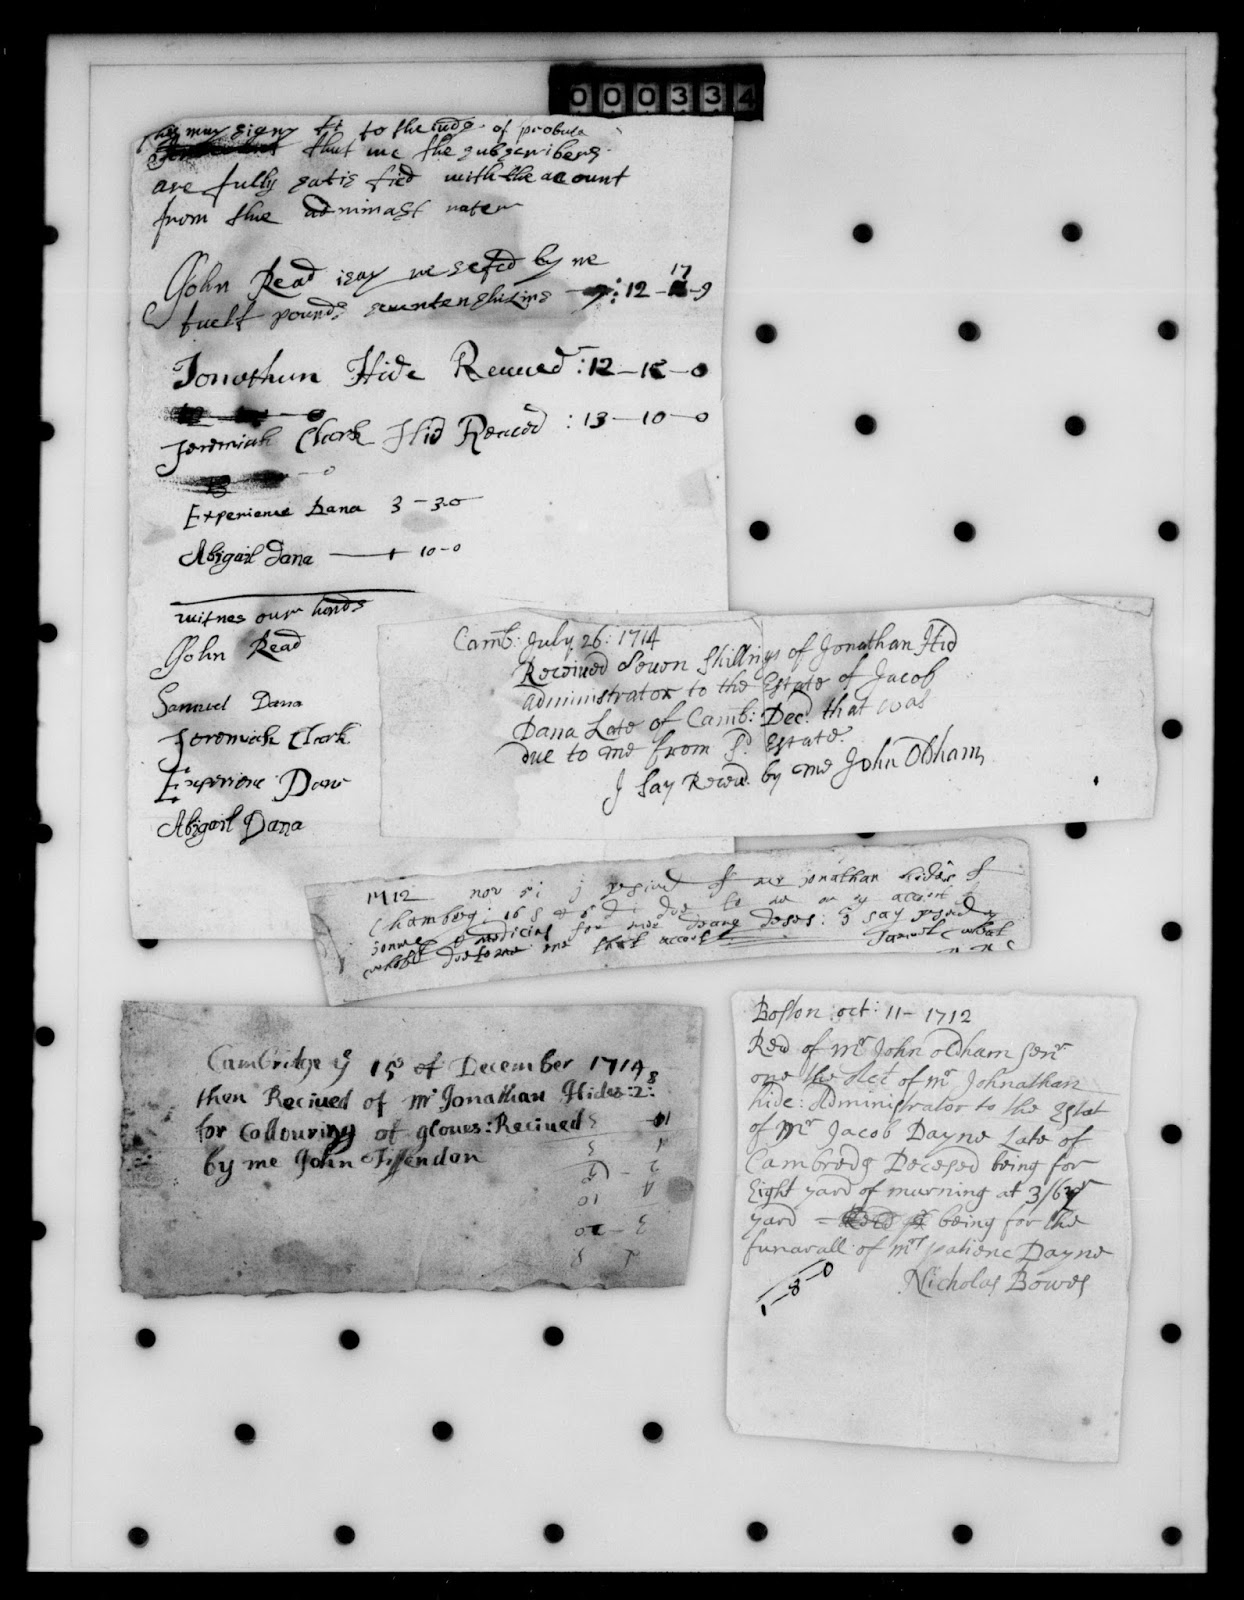 000334
may signy it to the iudg of probate
that we the subscribers
are fully satis fied with the account
from the adminast rater
John Read isay re sefed by me
tuelf pounds seuenten shilins 12-17-9
Jonathan Hide Receued: 12-12-0
Jeremiah Clark Hid Receced : 13-10-0
Experience Dana 3-3-0
Abigail Dana 10-0
witnes our hands
John Read
Samuel Dana
Jeremiah Clark
Experienc Dana
Abigail Dana
Camb: July 26: 1714
Receiued Seuen Shillings of Jonathan Hid
administrator to the Estate of Jacob
Dana Late of Camb: Decd. that was
due to me from sd. Estate.
I Say Receud. by me John Oldham
1712 nov 5: j resiued of mr jonathan hides of
Chambrg: 16 s & 6 d: due to me on accont
for mr deses: I say
due to me that accont
Cambridge ye 15 of December 1714
then Reciued of Mr Jonathan Hides: 2: 8
for Collouring of gloues: Reciued
by me John Fissendon
Boston oct: 11- 1712
Recd of mr John oldham senr
one the Act of mr Johnathan
hide: Administrator to the Estat
of mr Jacob Dayne Late of
Cambredg Decesed being for
Eight yard of murning at 3/6 pr
yard = being for the
funarall of mrs patienc Dayne
1-8-0 Nicholas Bowes